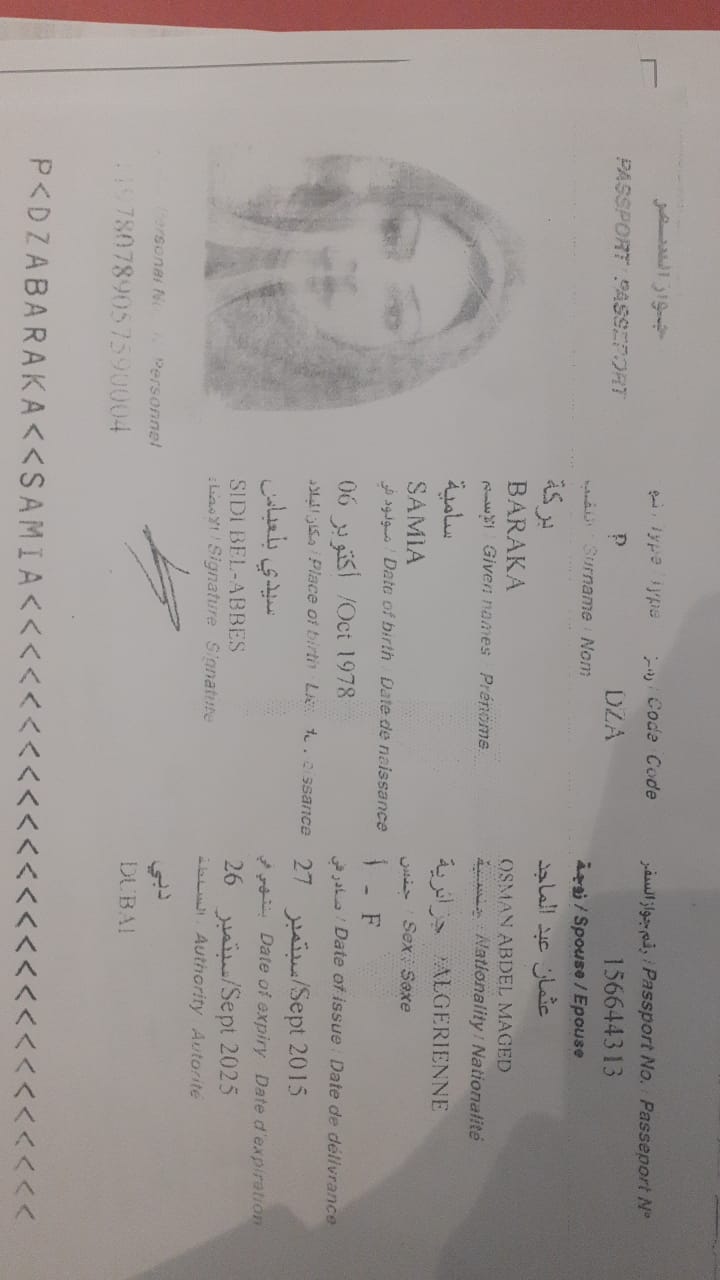 جواز السفر
PASSPORT / PASSEPORT
نوع / Type / Type
P
رمز / Code / Code
DZA
رقم جواز السفر / Passport No. / Passeport N°
156644313
اللقب / Surname / Nom
بركة
BARAKA
زوجة / Spouse / Epouse
عثمان عبد الماجد
OSMAN ABDEL MAGED
الاسم / Given names / Prénoms
سامية
SAMIA
جنسية / Nationality / Nationalité
جزائرية / ALGERIENNE
مولود في / Date of birth / Date de naissance
06 أكتوبر /Oct 1978
جنس / Sex / Sexe
أ - F
مكان الميلاد / Place of birth / Lieu de naissance
سيدي بلعباس
SIDI BEL-ABBES
صادر في / Date of issue / Date de délivrance
27 سبتمبر/Sept 2015
ينتهي في / Date of expiry / Date d'expiration
26 سبتمبر/Sept 2025
الإمضاء / Signature / Signature
السلطة / Authority / Autorité
دبي
DUBAI
Personal N° Personnel
P<DZABARAKA<<SAMIA<<<<<<<<<<<<<<<<<<<<<<<<<<